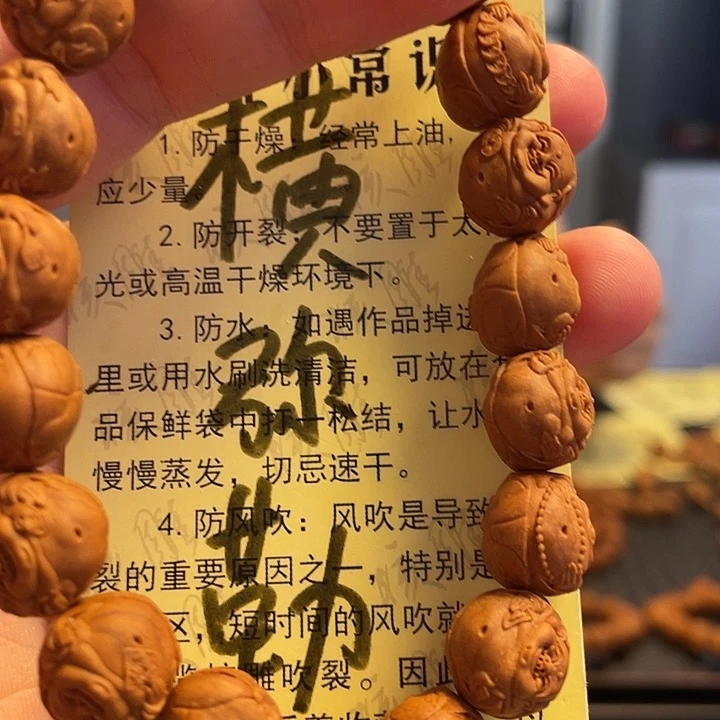 常识
1. 防干燥：经常上油，
应少量。
2. 防开裂：不要置于太
光或高温干燥环境下。
3. 防水：如遇作品掉进
里或用水刷洗清洁，可放在
品保鲜袋中打一松结，让水
慢慢蒸发，切忌速干。
4. 防风吹：风吹是导致
裂的重要原因之一，特别是
区，短时间的风吹就
雕吹裂。因此
横
弥
勒